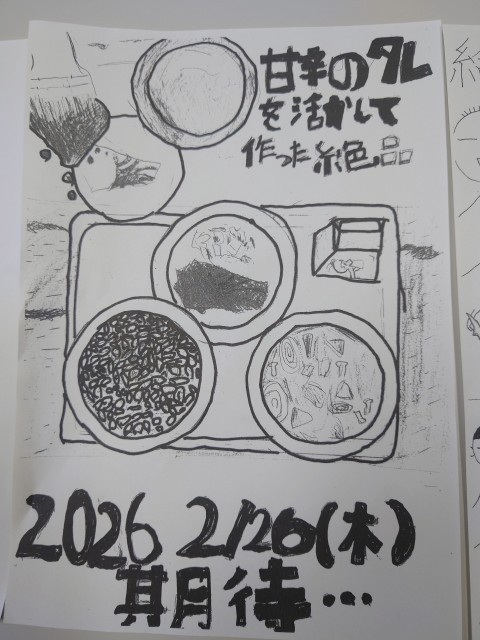 甘辛のタレ
を活かして
作った絶品
2026 2/26(木)
期待…